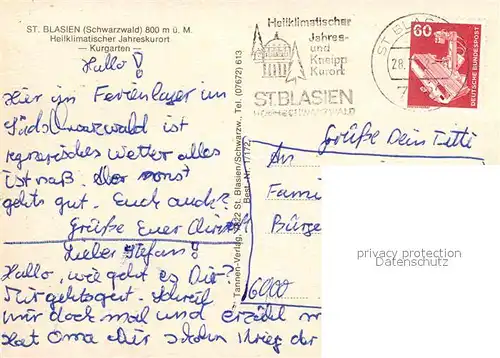 ST. BLASIEN (Schwarzwald) 800 m ü. M.
Heilklimatischer Jahreskurort
— Kurgarten —
Hallo!
Hier im Ferienlager im
Südschwarzwald ist
regnerisches Wetter alles
ist naß. Aber sonst
gehts gut. Euch auch?
Grüße Euer
Lieber Stefan!
Hallo, wie geht es Dir?
Mir gehts gut. Schreib
mir doch mal und erzähl
Hat Oma Dir schon der
Tannen-Verlag, St. Blasien/Schwarzw., Tel. (07672) 613
Best.-Nr.
Heilklimatischer
Jahres-
und
Kneipp
Kurort
ST.BLASIEN
HOCHSCHWARZWALD
ST. BLAS
28.
7
60
DEUTSCHE BUNDESPOST
Grüße Dein Tutti
An
Fami
Bürge
6000
privacy protection
Datenschutz